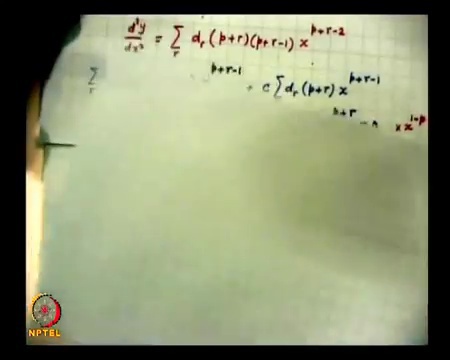 d²y/dx² = Σ_r d_r (p+r)(p+r-1) x^{p+r-2}
Σ_r ^{p+r-1} + c Σ d_r (p+r) x^{p+r-1}
^{p+r} × x^{1-p}
NPTEL